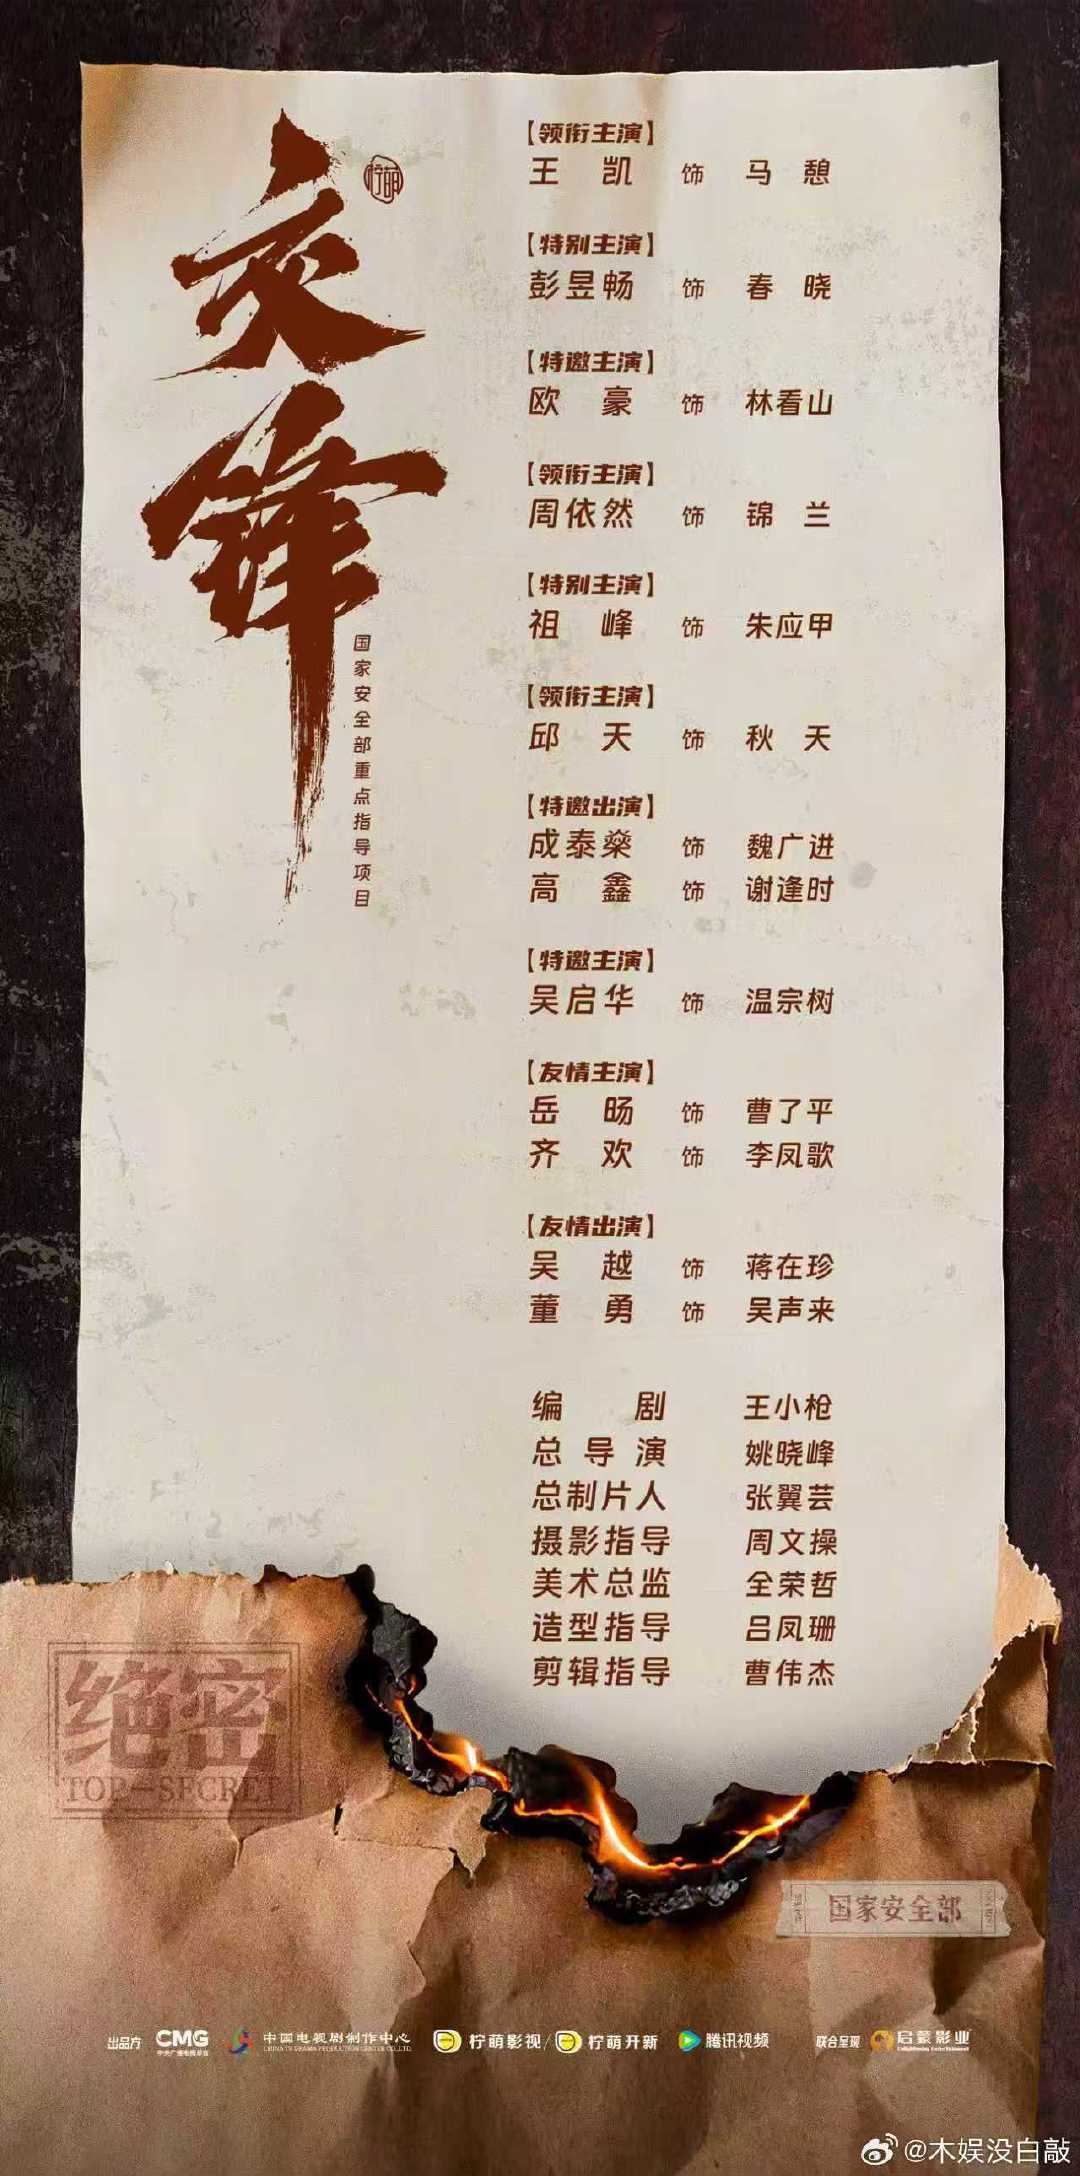 交锋
柠萌
国家安全部重点指导项目
【领衔主演】
王凯 饰 马憩
【特别主演】
彭昱畅 饰 春晓
【特邀主演】
欧豪 饰 林看山
【领衔主演】
周依然 饰 锦兰
【特别主演】
祖峰 饰 朱应甲
【领衔主演】
邱天 饰 秋天
【特邀出演】
成泰燊 饰 魏广进
高鑫 饰 谢逢时
【特邀主演】
吴启华 饰 温宗树
【友情主演】
岳旸 饰 曹了平
齐欢 饰 李凤歌
【友情出演】
吴越 饰 蒋在珍
董勇 饰 吴声来
编剧 王小枪
总导演 姚晓峰
总制片人 张翼芸
摄影指导 周文操
美术总监 全荣哲
造型指导 吕凤珊
剪辑指导 曹伟杰
绝密
TOP-SECRET
国家安全部
出品方 CMG 中央广播电视总台 中国电视剧制作中心 CHINA TV DRAMA PRODUCTION CENTER CO.,LTD. 柠萌影视/柠萌开新 腾讯视频 联合呈现 启蒙影业 Enlightening Entertainment
@木娱没白敲